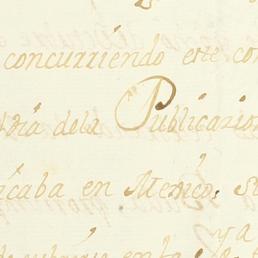 concurriendo este co
dia dela Publicazion
icaba en Mexico, s
ya